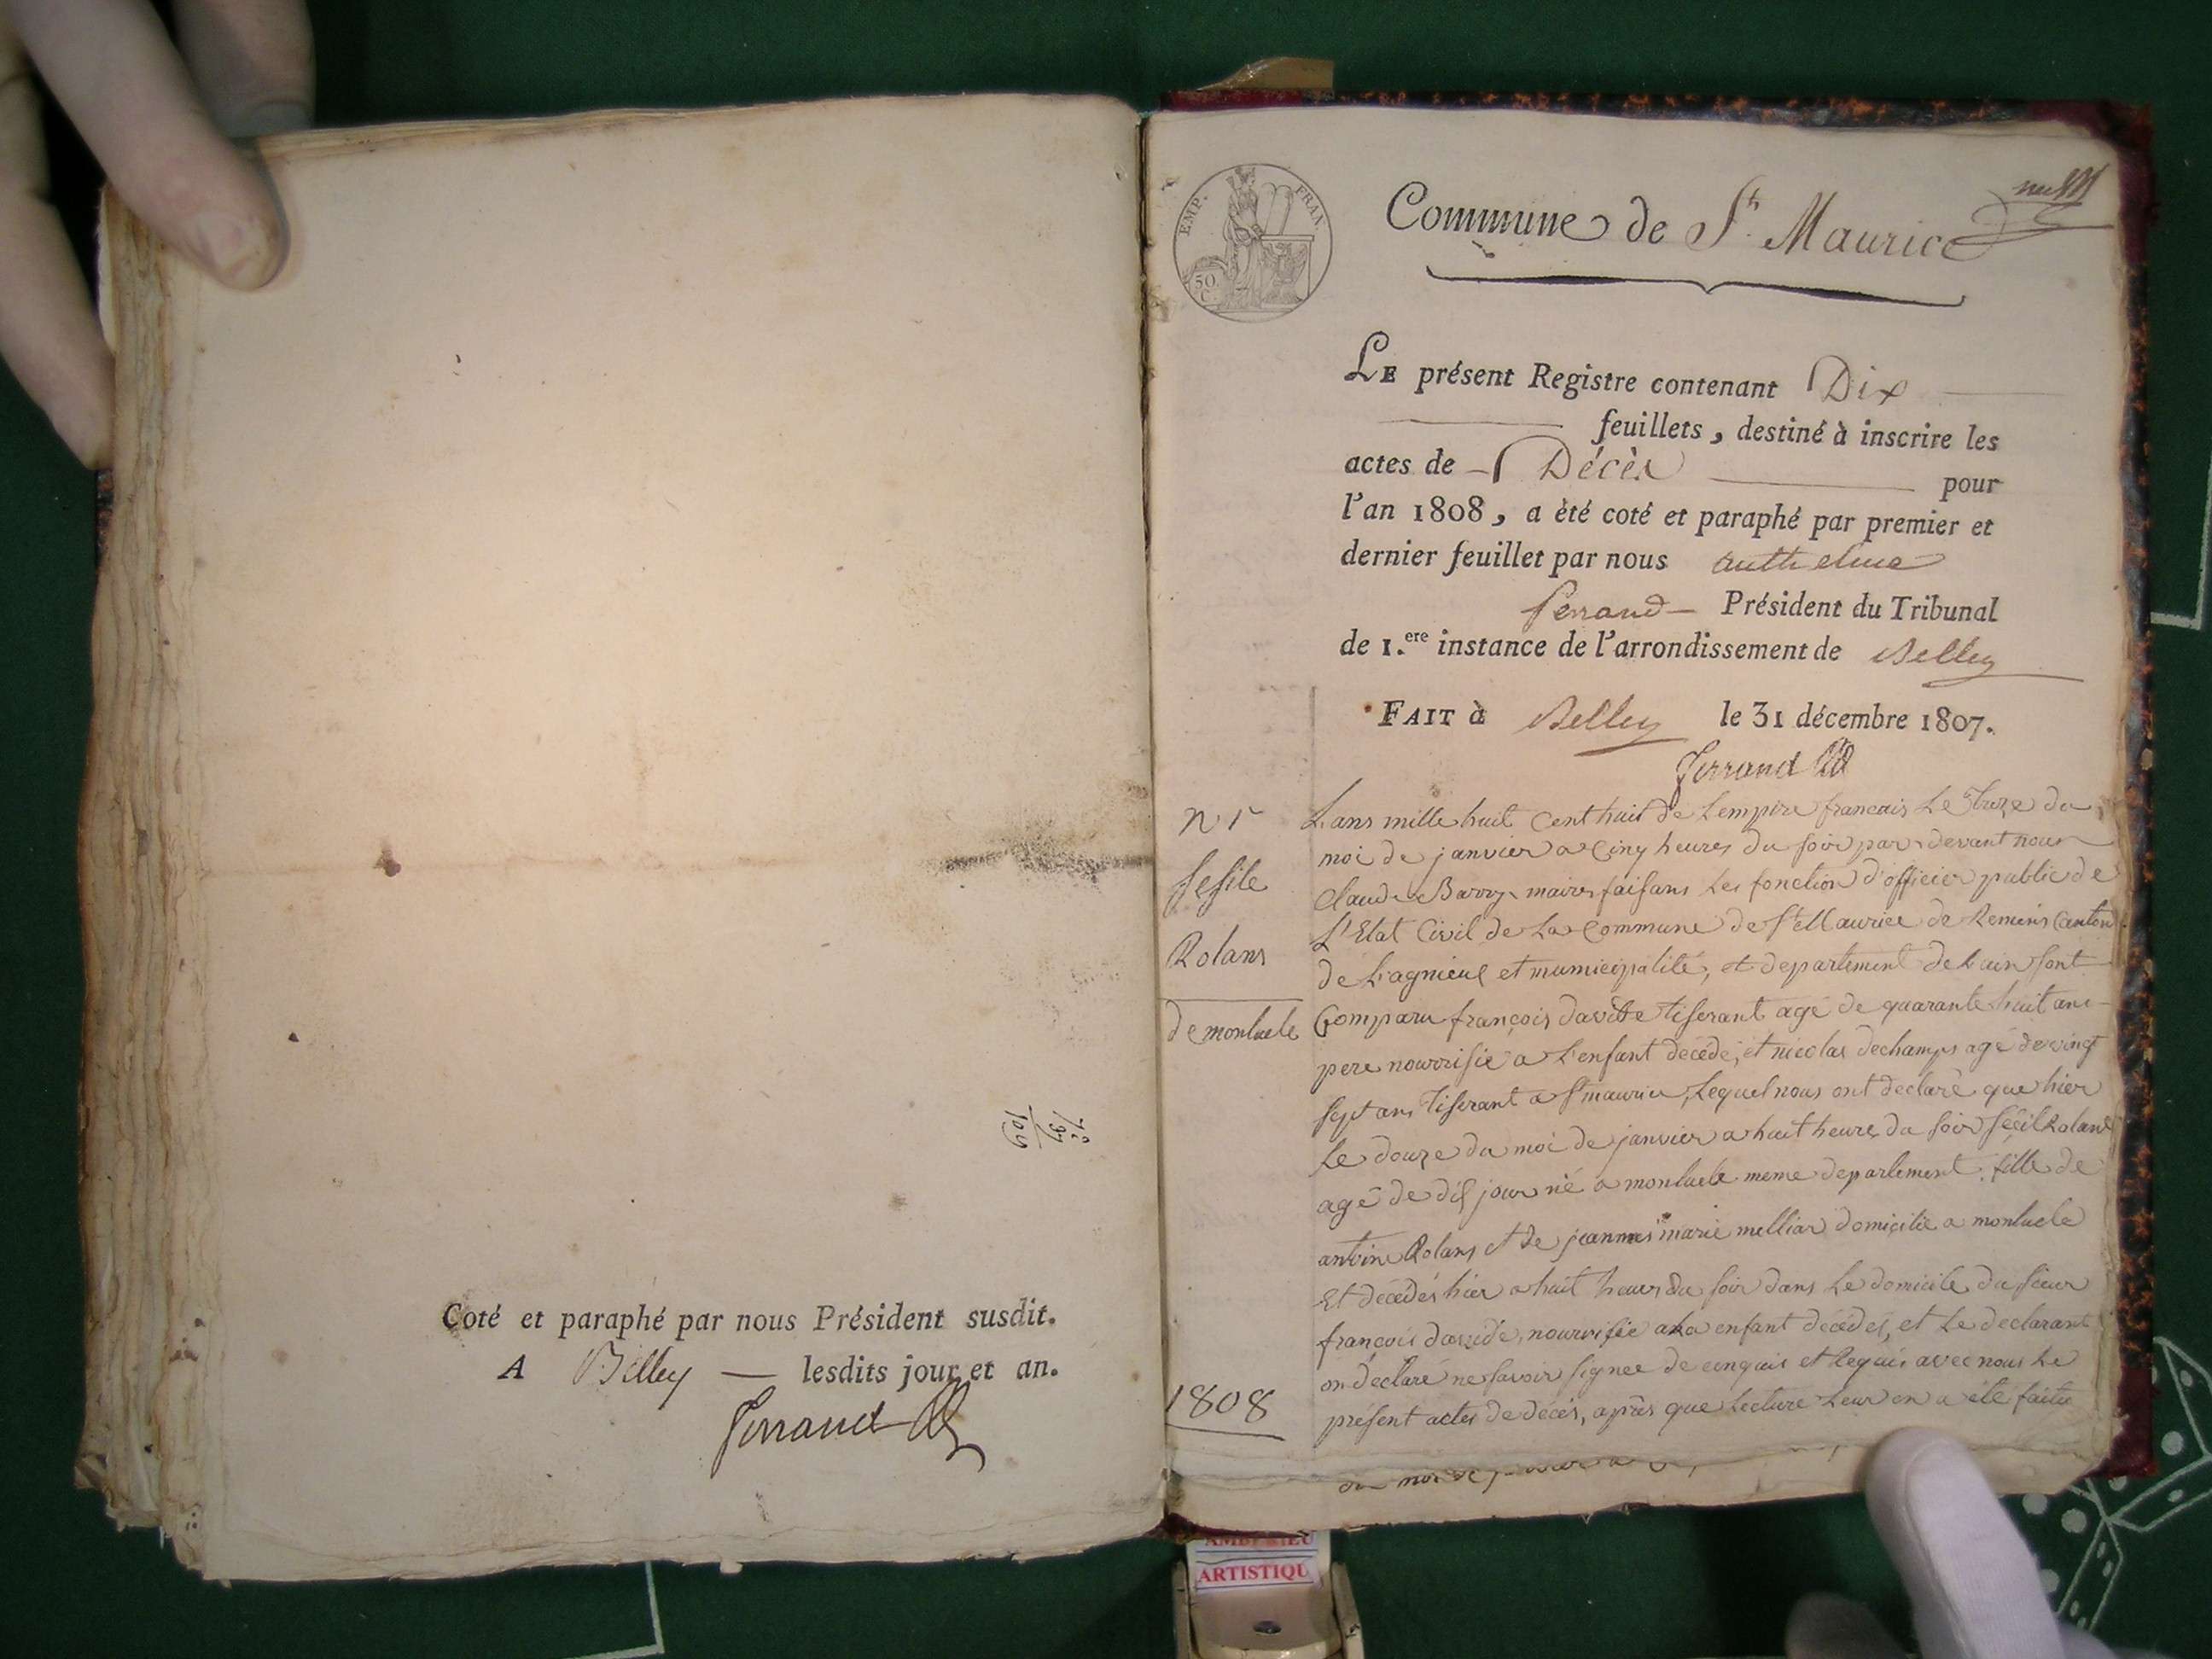 Coté et paraphé par nous Président susdit.
A Belley — lesdits jour et an.
Ferrand
72
37
109
EMP. FRAN.
50
C.
Commune de St Maurice
LE présent Registre contenant Dix
feuillets, destiné à inscrire les
actes de Décès pour
l'an 1808, a été coté et paraphé par premier et
dernier feuillet par nous anthelme
ferrand Président du Tribunal
de 1.ere instance de l'arrondissement de Belley
FAIT à Belley le 31 décembre 1807.
Ferrand
n 1
sesile
Rolans
de monluele
1808
Lans mille huit Cent huit de Lempire francais Le treze du
moi de janvier a Cinq heures du soir par devant nous
Claude Barry maires faisans Les fonction d'officier public de
L'Etat Civil de La Commune de St Maurice de Remens Canton
de Lagnieux et municipalité, et departement de Lain sont
Comparu françois davitte tiserant agé de quarante huit ans
pere nourrisié a L'enfant decédé, et nicolas dechamps agé de vingt
sept ans tiserant a St maurice, Lequel nous ont declaré que hier
Le douze du moi de janvier a huit heures du soir sécil Rolans
agé de dix jour né a monluele meme departement. fille de
antoine Rolans et de jeannes marie melliar domicilie a monluele
Et decédés hier a huit heures du soir dans Le domicile du sieur
françois davide, nourrisié a La enfant décédés, et Le declarant
on declaré ne savoir signee de enquis et Requis avec nous Le
présent actes de décés, après que Lecture Leur en a été faitte
du moi de
AMBERIEU
ARTISTIQU